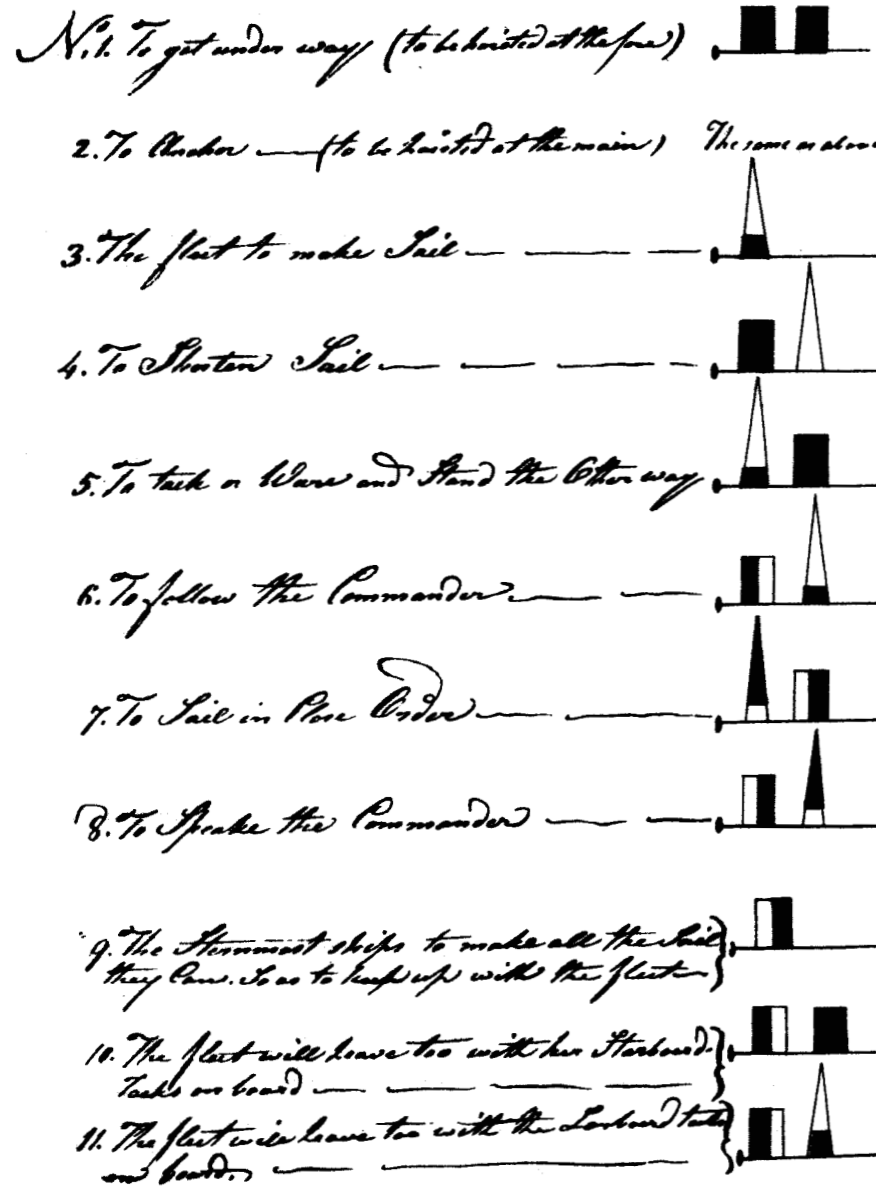 No. 1. To get under way (to be hoisted at the fore)
2. To Anchor — (to be hoisted at the main) The same as above
3. The fleet to make Sail
4. To Shorten Sail
5. To tack or Ware and Stand the Other way
6. To follow the Commander
7. To Sail in Close Order
8. To Speake the Commander
9. The Sternmost ships to make all the Sail
they Can. So as to keep up with the fleet
10. The fleet will heave too with her Starboard
Tacks on board
11. The fleet will heave too with the Larboard tacks
on board.